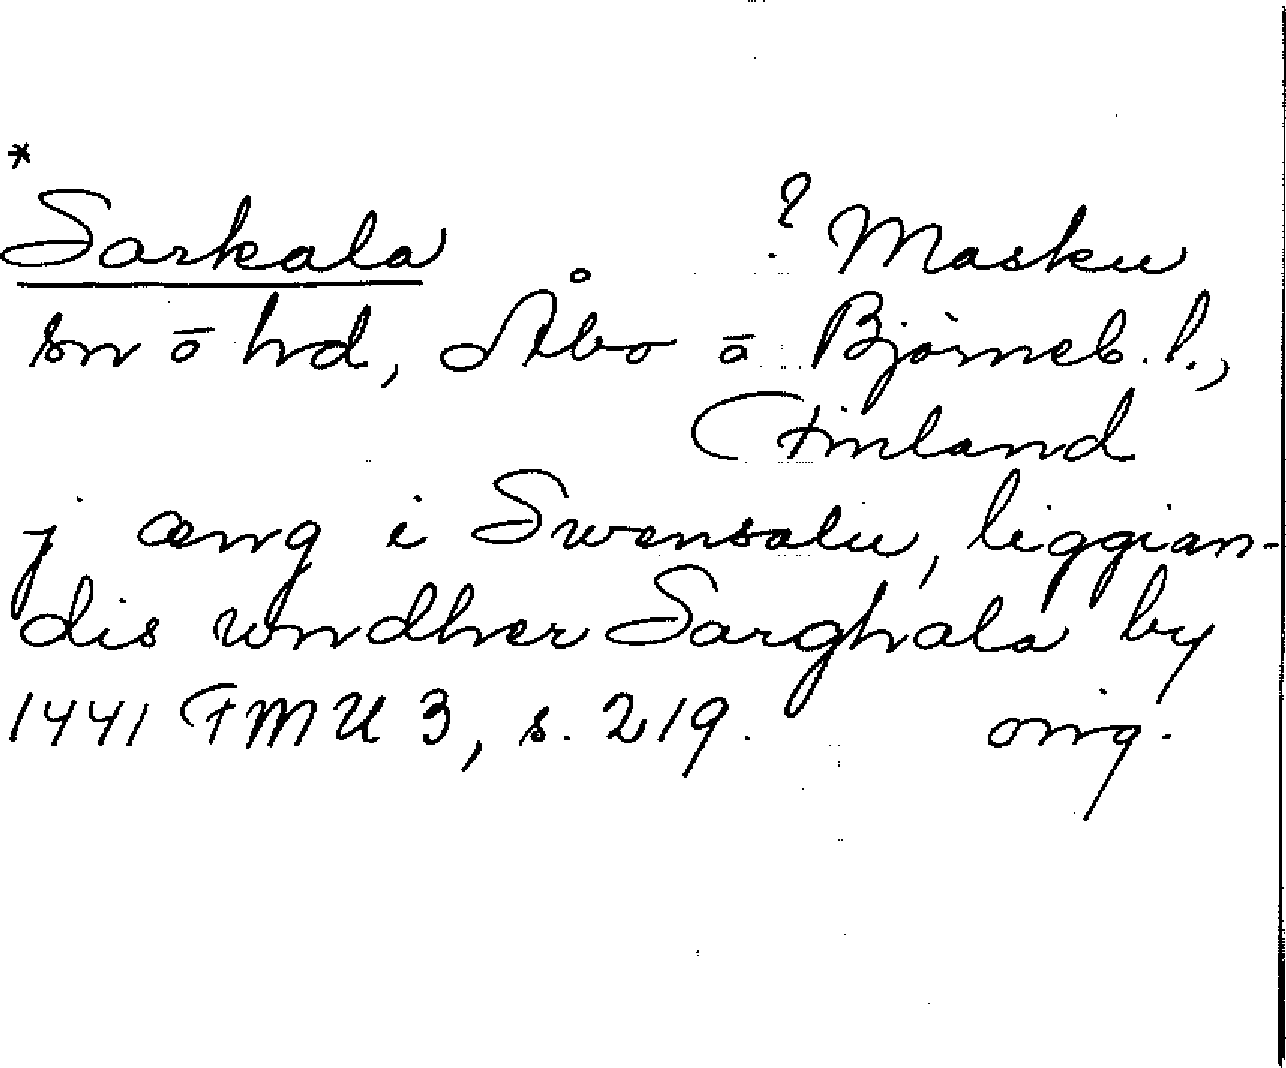 *
Sarkala ? Masku
sn o hd, Åbo o Björneb. l.,
Finland
j æng i Swensalu, liggian-
dis wndher Sarghala by
1441 FMU 3, s. 219. orig.